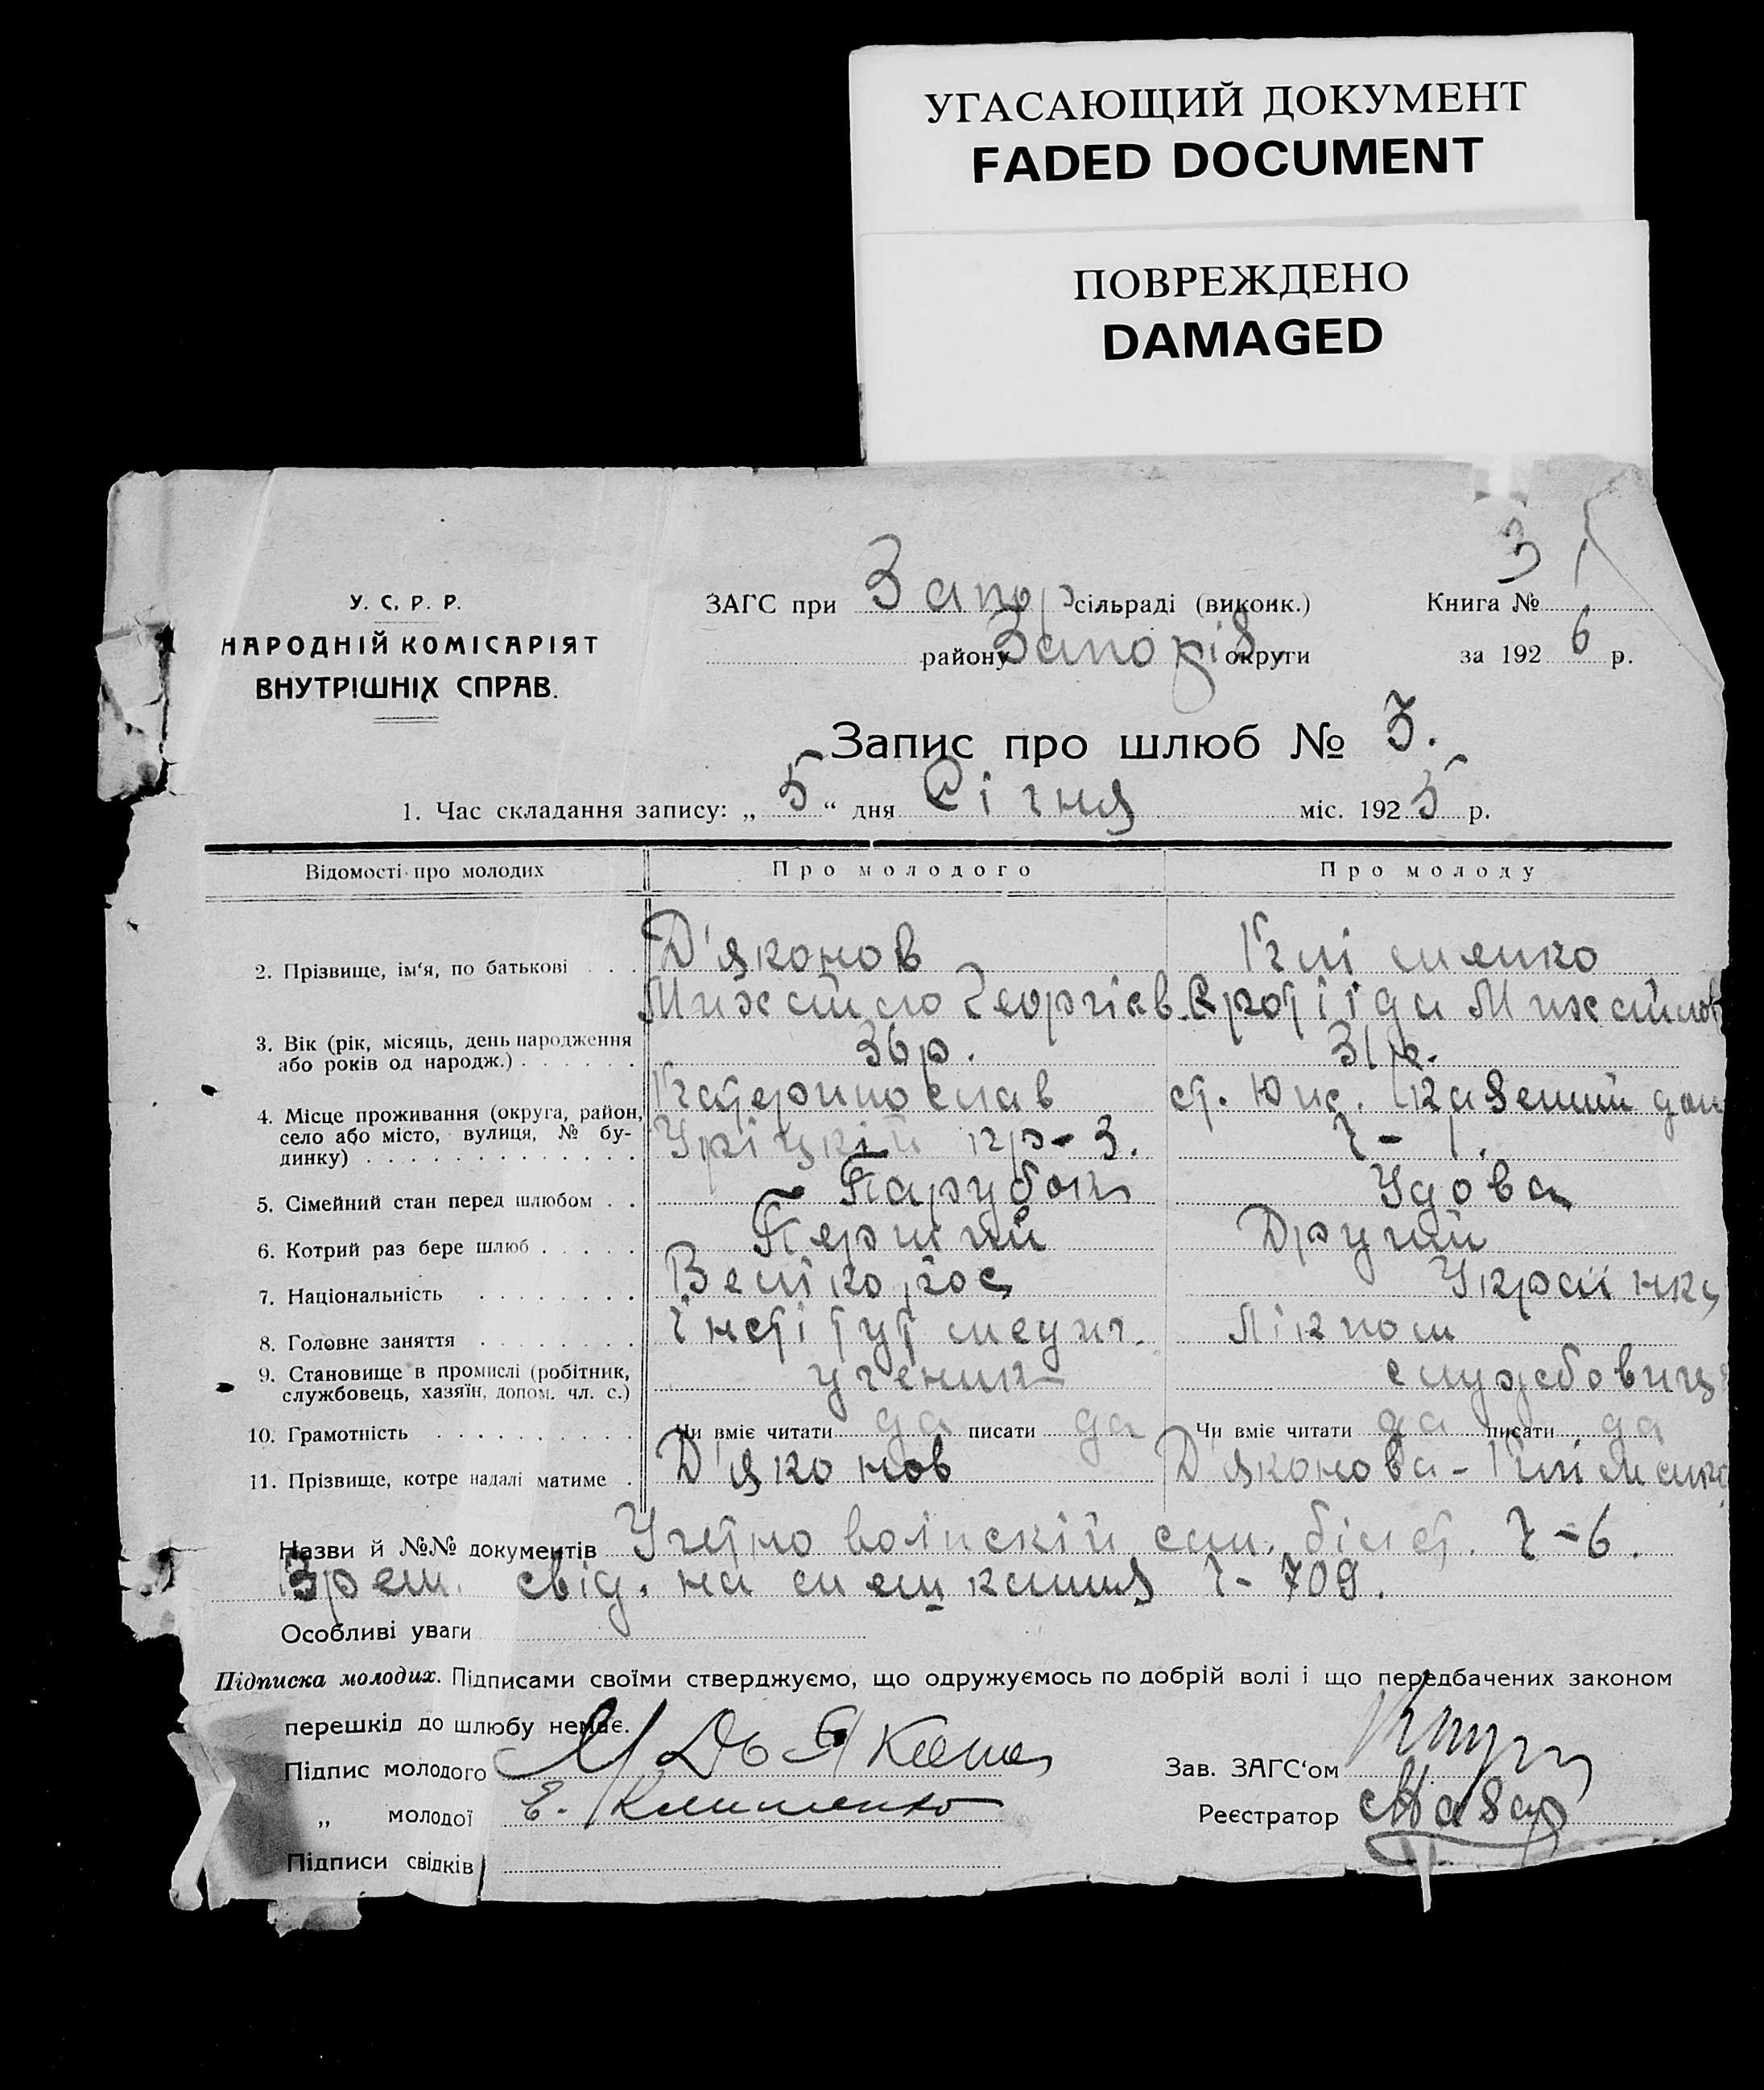 УГАСАЮЩИЙ ДОКУМЕНТ
FADED DOCUMENT
ПОВРЕЖДЕНО
DAMAGED
У. С. Р. Р.
НАРОДНІЙ КОМІСАРІЯТ
ВНУТРІШНІХ СПРАВ.
ЗАГС при Запор сільраді (виконк.)
району Запоріз округи
Книга № 3
за 1926 р.
Запис про шлюб № 3.
1. Час складання запису: „5“ дня Січня міс. 1925 р.
Відомості про молодих Про молодого Про молоду
2. Прізвище, ім‘я, по батькові . . . Д'яконов Клименко
Михайло Георгієв. Михайлов
3. Вік (рік, місяць, день народження
або років од народж.) . . . . . . 36 р. 31 р.
4. Місце проживання (округа, район,
село або місто, вулиця, № бу-
динку) . . . . . . . . . . . . . Катеринослав ст. Юпс. Казений дом
Уріцкій кр-3. ч-1.
5. Сімейний стан перед шлюбом . . Парубок Удова
6. Котрий раз бере шлюб . . . . . Перший Другий
7. Національність . . . . . . . . Велікорос Українка
8. Головне заняття . . . . . . . . Інстітут медич. Лікпом
9. Становище в промислі (робітник,
службовець, хазяїн, допом. чл. с.) ученик службовиця
10. Грамотність . . . . . . . . . . Чи вміє читати да писати да Чи вміє читати да писати да
11. Прізвище, котре надалі матиме . Д'яконов Д'яконова-Клименко
Назви й №№ документів Учетно воінскій білет. ч-6.
Врем. свід. на мешкання ч-709.
Особливі уваги
Підписка молодих. Підписами своїми стверджуємо, що одружуємось по добрій волі і що передбачених законом
перешкід до шлюбу немає.
Підпис молодого М Дьяконов
Зав. ЗАГС‘ом
„ молодої Е. Клименко
Реєстратор
Підписи свідків